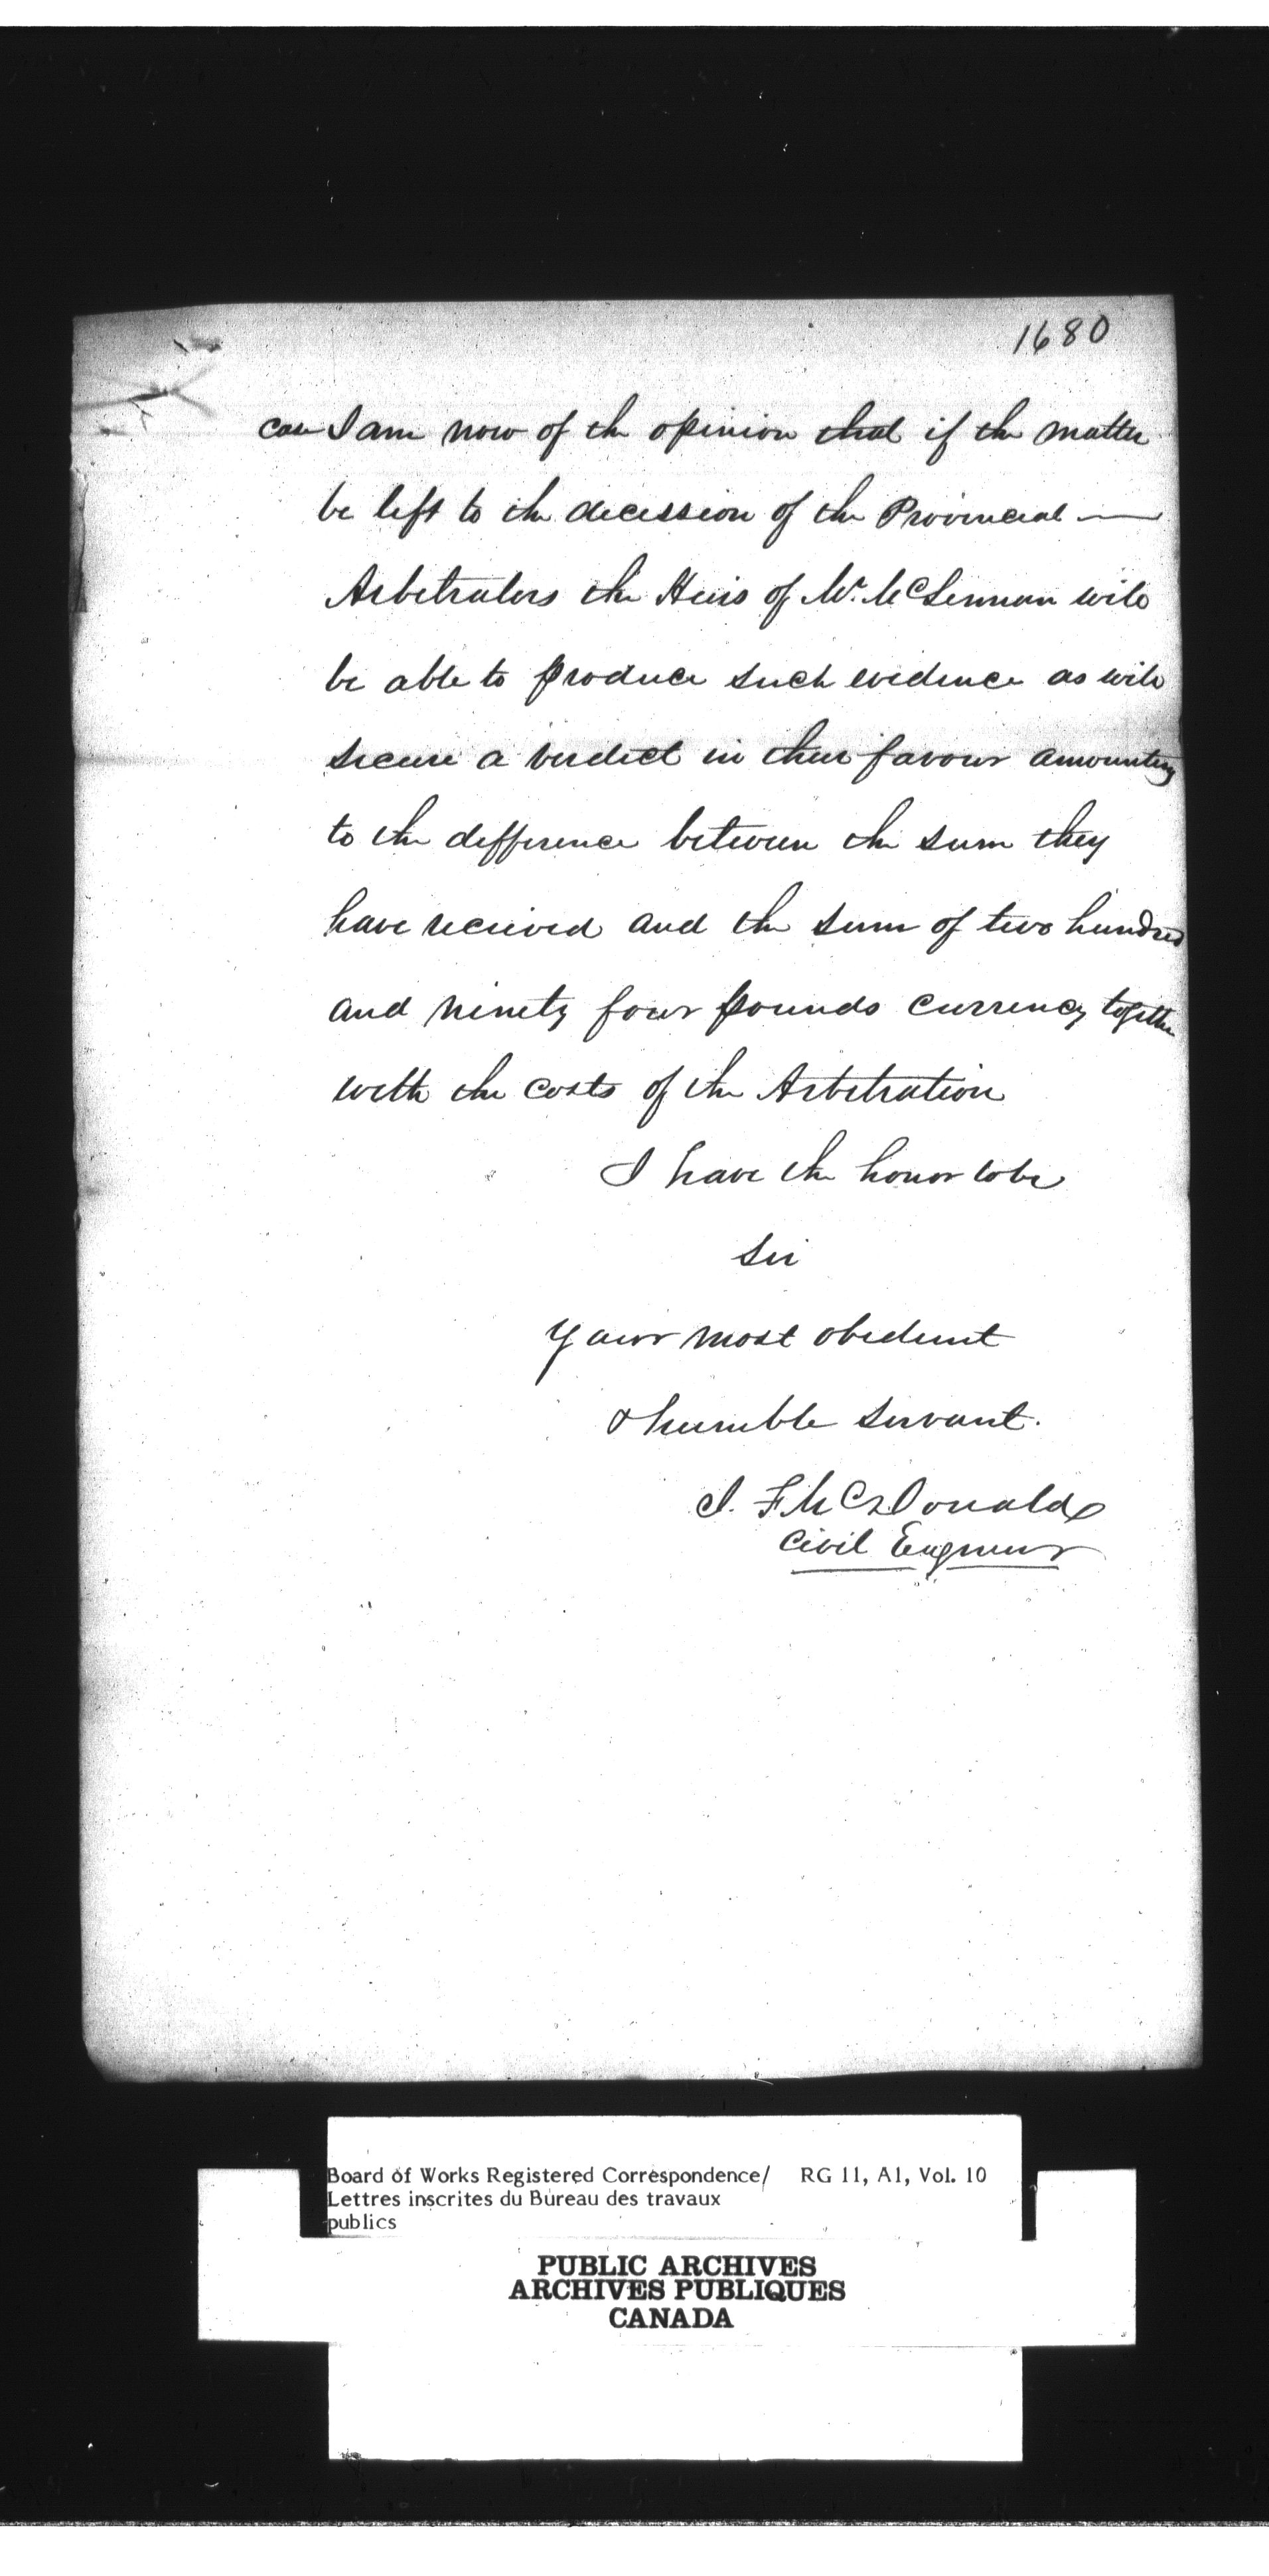 1680
case I am now of the opinion that if the matter
be left to the decession of the Provincial —
Arbitrators the Heirs of Mr. McLennan will
be able to produce such evidence as will
secure a verdict in their favour amounting
to the difference between the sum they
have received and the sum of two hundred
and ninety four pounds currency together
with the costs of the Arbitration
I have the honor to be
Sir
Your most obedient
& humble servant.
J. F McDonald
Civil Engineer
Board of Works Registered Correspondence/ RG 11, A1, Vol. 10
Lettres inscrites du Bureau des travaux
publics
PUBLIC ARCHIVES
ARCHIVES PUBLIQUES
CANADA